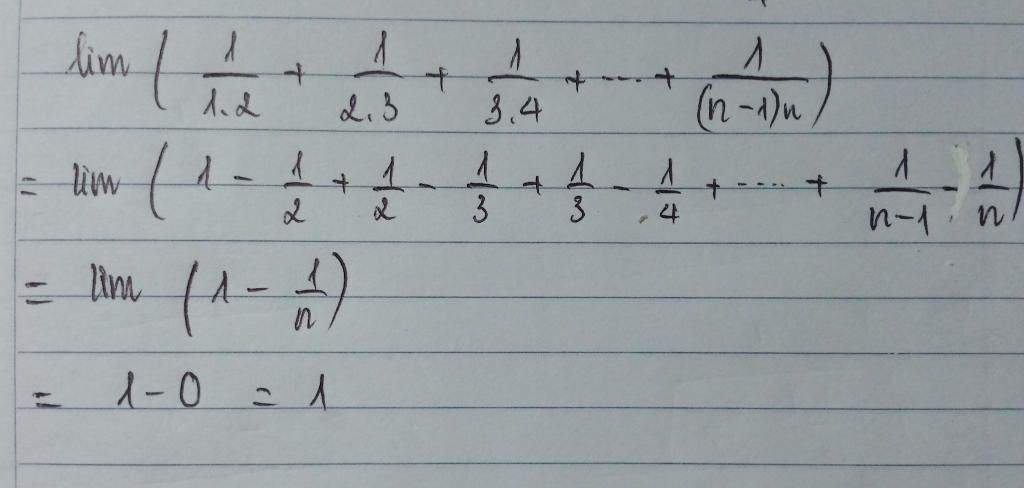 lim ( 1/1.2 + 1/2.3 + 1/3.4 + ... + 1/(n-1)n )
= lim ( 1 - 1/2 + 1/2 - 1/3 + 1/3 - 1/4 + .... + 1/n-1 - 1/n )
= lim ( 1 - 1/n )
= 1 - 0 = 1